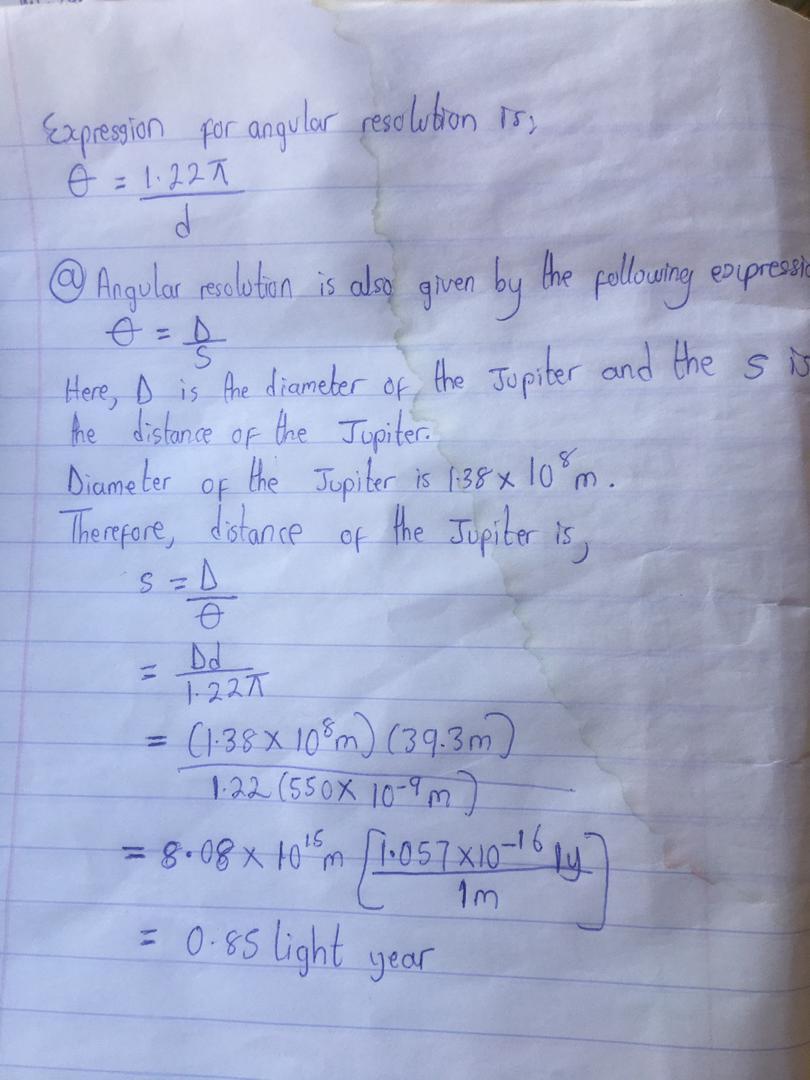 Expression for angular resolution is;
θ = 1.22π
d
ⓐ Angular resolution is also given by the following expressio
θ = D
S
Here, D is the diameter of the Jupiter and the s is
the distance of the Jupiter.
Diameter of the Jupiter is 1.38 x 10⁸ m.
Therefore, distance of the Jupiter is,
s = D
θ
= Dd
1.22π
= (1.38 x 10⁸m) (39.3m)
1.22 (550 x 10⁻⁹ m)
= 8.08 x 10¹⁵ m [1.057 x10⁻¹⁶ ly
1m]
= 0.85 light year